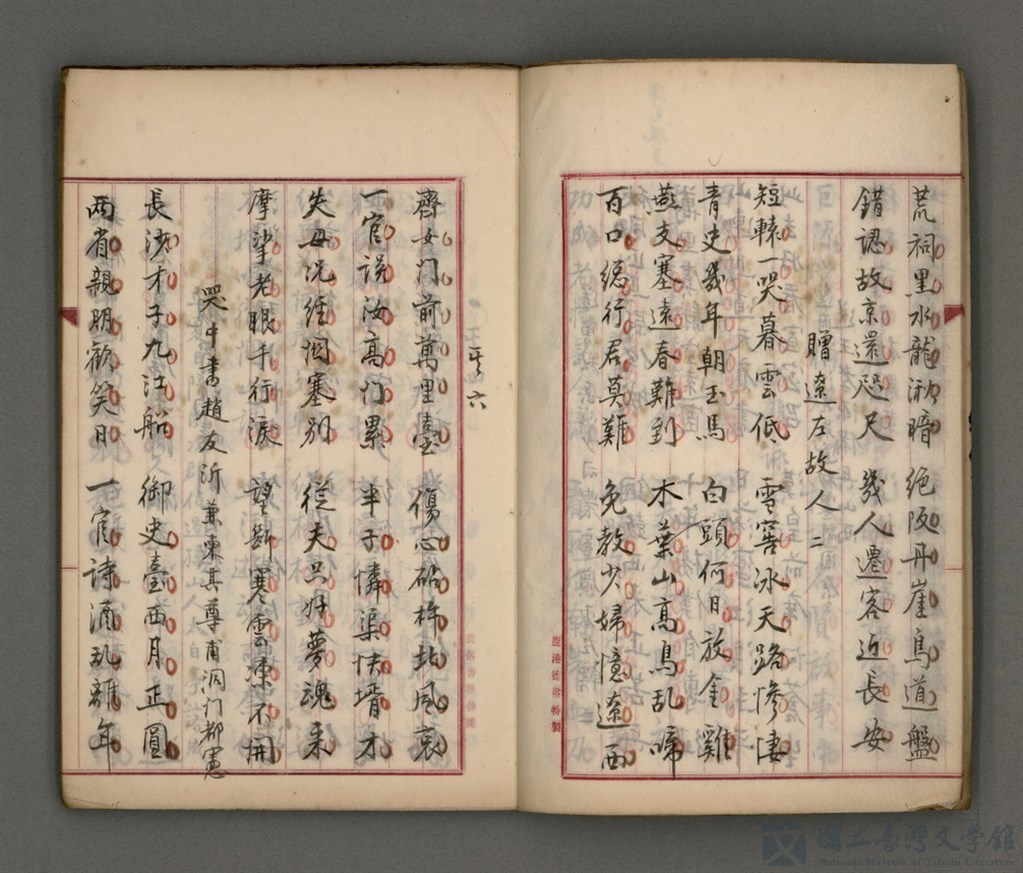 荒祠黑水龍湫暗 絕阪丹崖鳥道盤
錯認故京還咫尺 幾人遷客近長安
贈遼左故人 二
短轅一哭暮雲低 雪窖冰天路慘悽
青史幾年朝玉馬 白頭何日放金雞
燕支塞遠春難到 木葉山高鳥亂啼
百口總行君莫難 免教少婦憶遼西
鹿港德裕特製
其六
齊女门前萬里臺 傷心砧杵北風哀
一官誤汝高门累 半子憐渠快壻才
失母况經関塞別 從夫只好夢魂来
摩挲老眼千行淚 望斷寒雲凍不開
哭中書趙友沂兼柬其尊甫洞门都憲
長沙才子九江船 御史臺西月正圓
兩省親朋歡笑日 一官詩酒乱離年
國立臺灣文學館
National Museum of Taiwan Literature